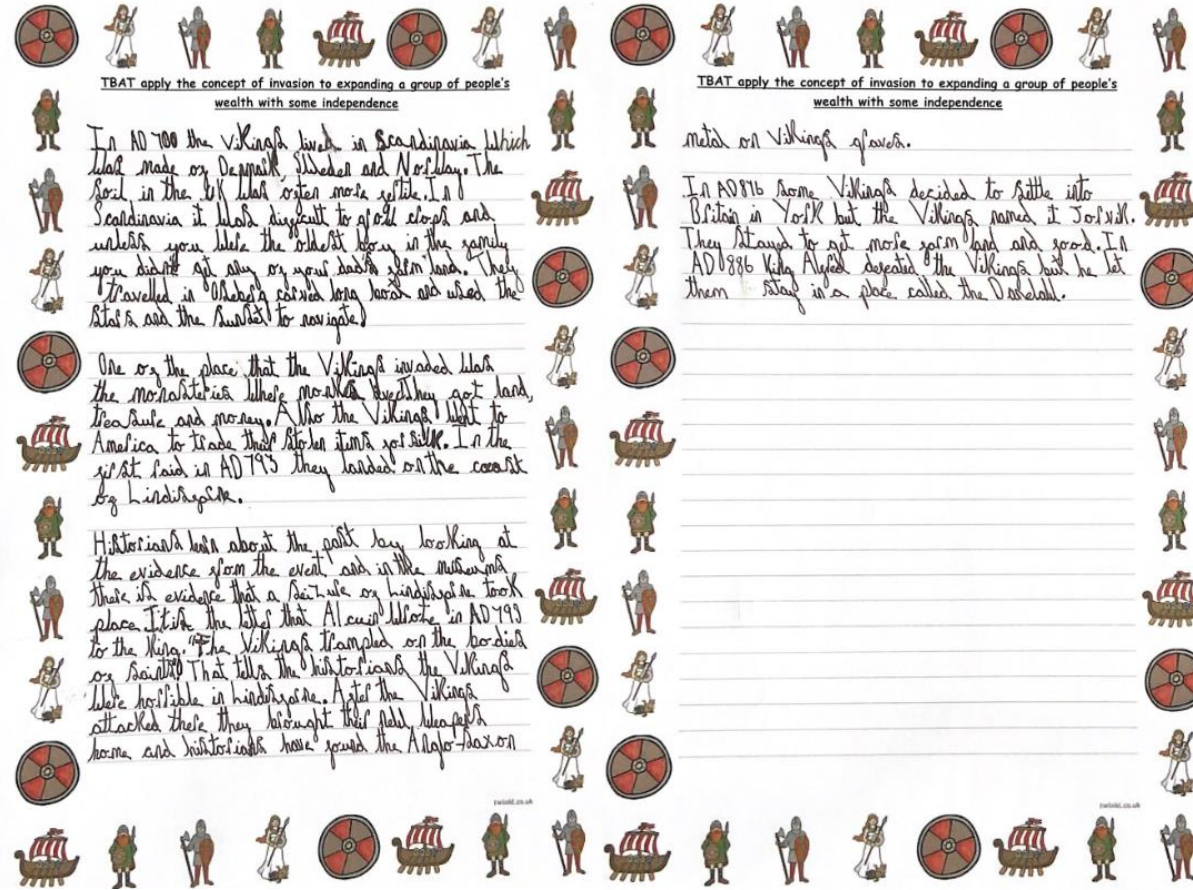 TBAT apply the concept of invasion to expanding a group of people's
wealth with some independence
In AD 700 the Vikings lived in Scandinavia which
was made of Denmark, Sweden and Norway. The
soil in the UK was often more fertile. In
Scandinavia it was difficult to grow crops and
unless you were the oldest boy in the family
you didn't get any of your dads farm land. They
travelled in Oseberg carved long boat and used the
stars and the sunset to navigate.
One of the place that the Vikings invaded was
the monasteries where monks lived. They got land,
treasure and money. Also the Vikings went to
America to trade their stolen items for silk. In the
first raid in AD 793 they landed on the coast
of Lindisfarne.
Historians learn about the past by looking at
the evidence from the event and in the museums
there is evidence that a seizure of Lindisfarne took
place. It is the letter that Alcuin wrote in AD 793
to the King. "The Vikings trampled on the bodies
of saints" That tells the historians the Vikings
were horrible in Lindisfarne. After the Vikings
attacked there they brought their new weapons
home and historians have found the Anglo-Saxon
twinkl.co.uk
TBAT apply the concept of invasion to expanding a group of people's
wealth with some independence
metal on Vikings graves.
In AD 876 some Vikings decided to settle into
Britain in York but the Vikings named it Jorvik.
They stayed to get more farm land and food. In
AD 886 King Alfred defeated the Vikings but he let
them stay in a place called the Danelaw.
twinkl.co.uk